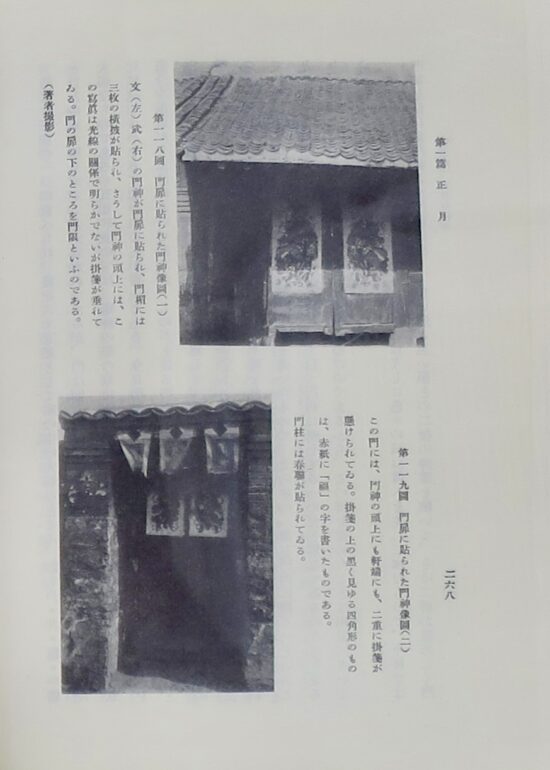 第一篇　正　月
二六八
第一一八圖　門扉に貼られた門神像圖(一)
文(左)武(右)の門神が門扉に貼られ、門楣には
三枚の橫披が貼られ、さうして門神の頭上には、こ
の寫眞は光線の關係で明らかでないが掛箋が垂れて
ゐる。門の扉の下のところを門限といふのである。
(著者撮影)
第一一九圖　門扉に貼られた門神像圖(二)
この門には、門神の頭上にも軒端にも、二重に掛箋が
懸けられてゐる。掛箋の上の黑く見ゆる四角形のもの
は、赤紙に「福」の字を書いたものである。
門柱には春聯が貼られてゐる。